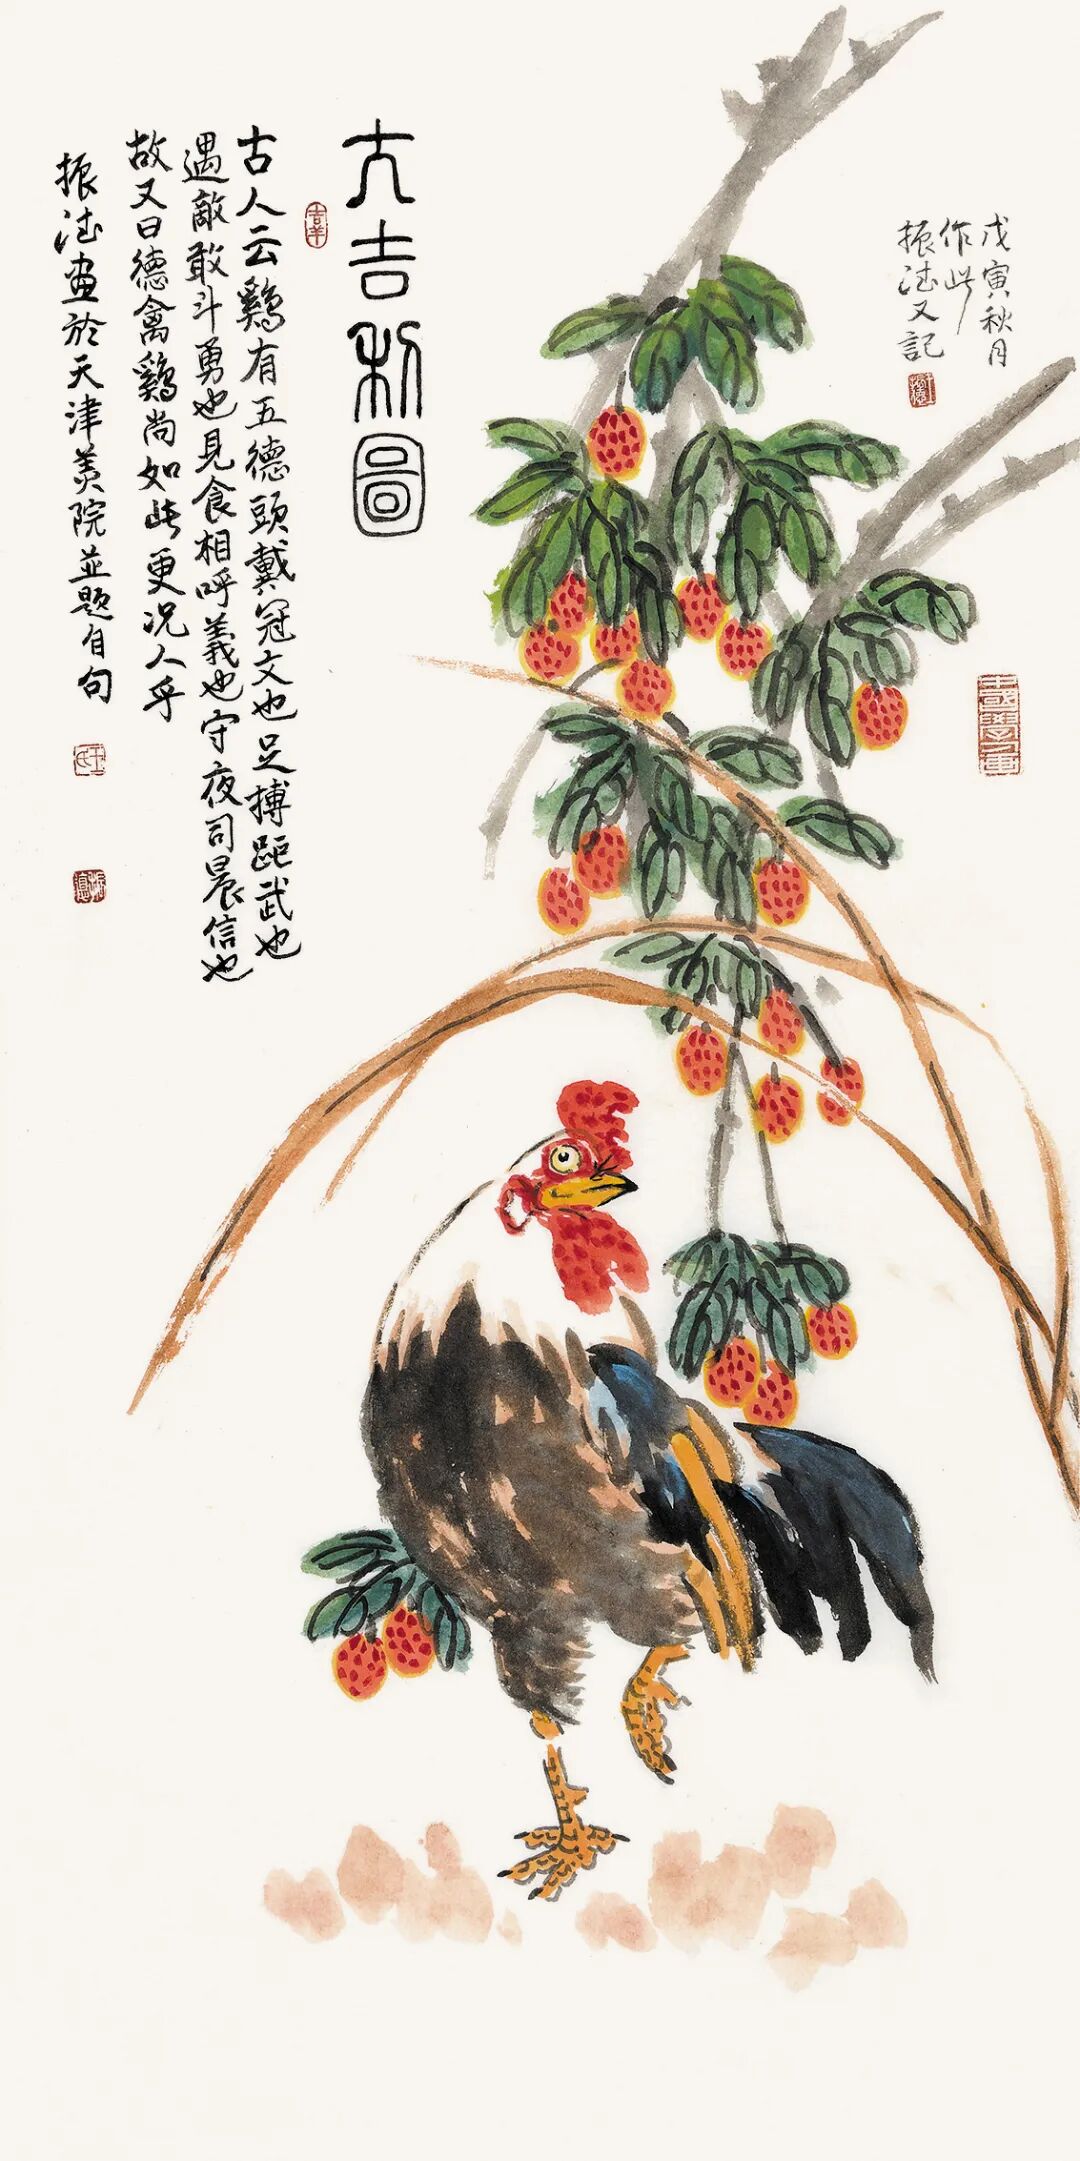 大吉利圖
吉羊
古人云鷄有五德頭戴冠文也足搏距武也
遇敵敢斗勇也見食相呼義也守夜司晨信也
故又曰德禽鷄尚如此更況人乎
振德畫於天津美院並題自句
王氏
振德
戊寅秋月
作此
振德又記